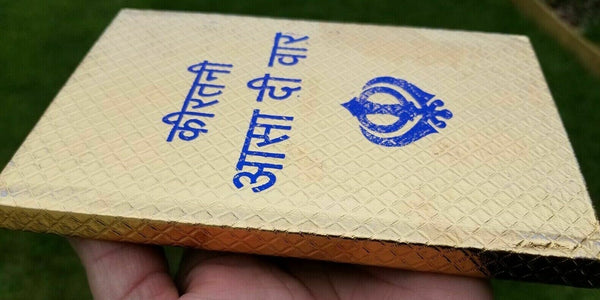 कीरतनी
आसा दी वार